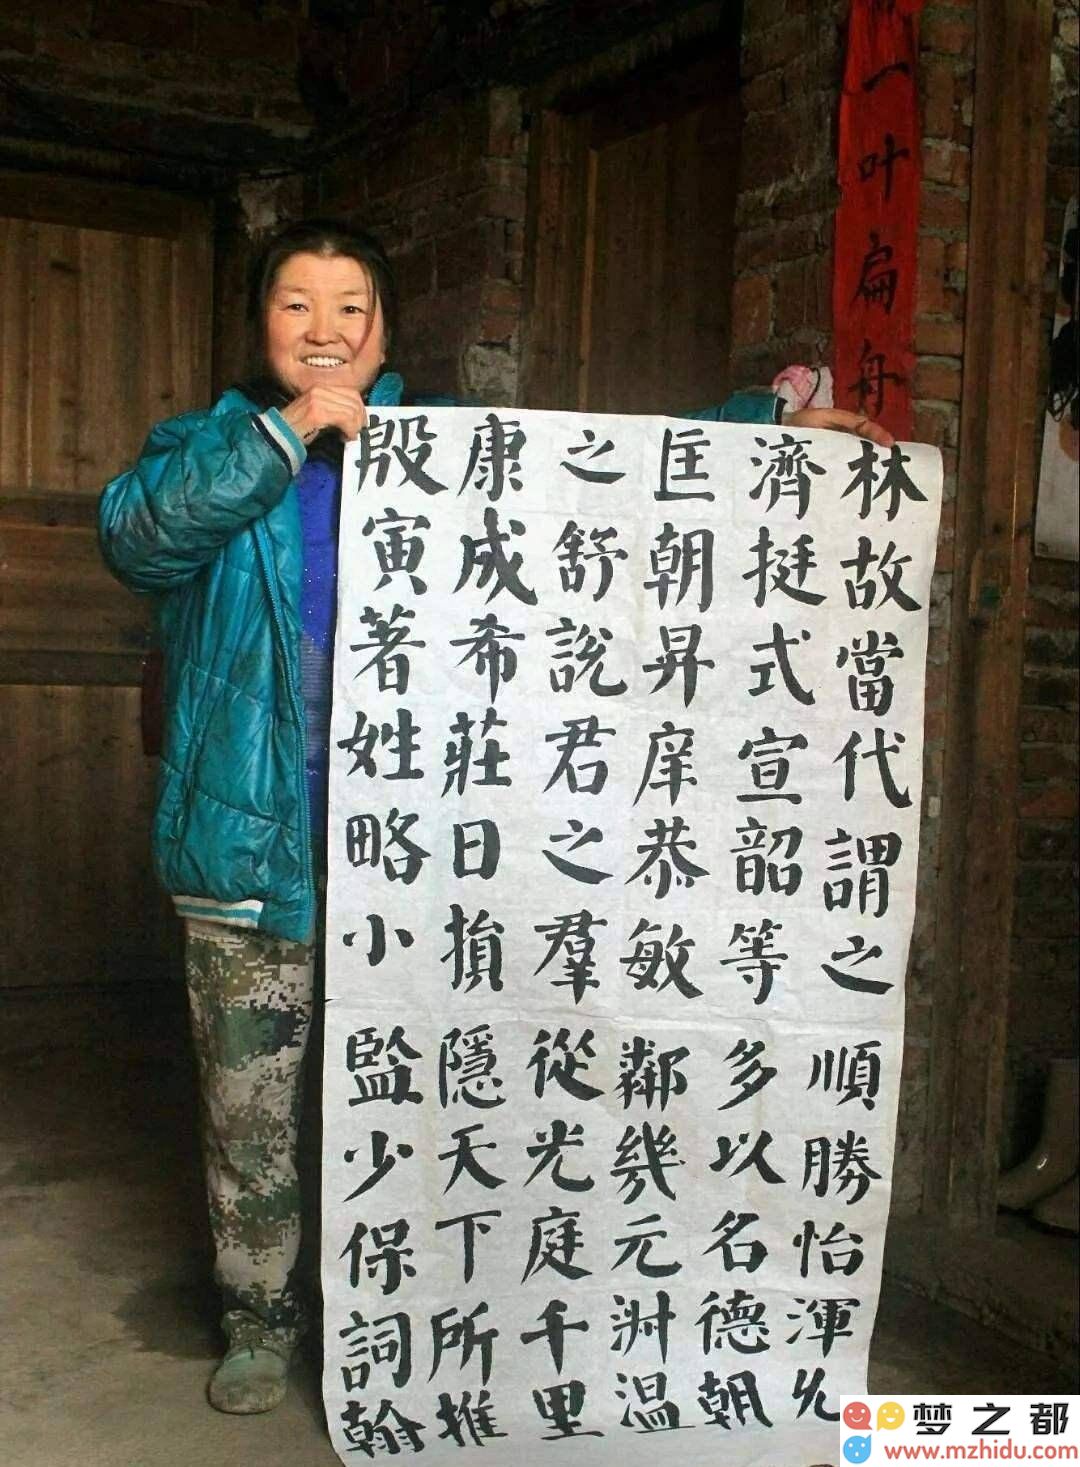 一叶扁舟
林故當代謂之順勝怡渾允
濟挺式宣韶等多以名德朝
匡朝昇庠恭敏鄰幾元淑溫
之舒說君之羣從光庭千里
康成希莊日損隱天下所推
殷寅著姓略小監少保詞翰
梦之都
www.mzhidu.com